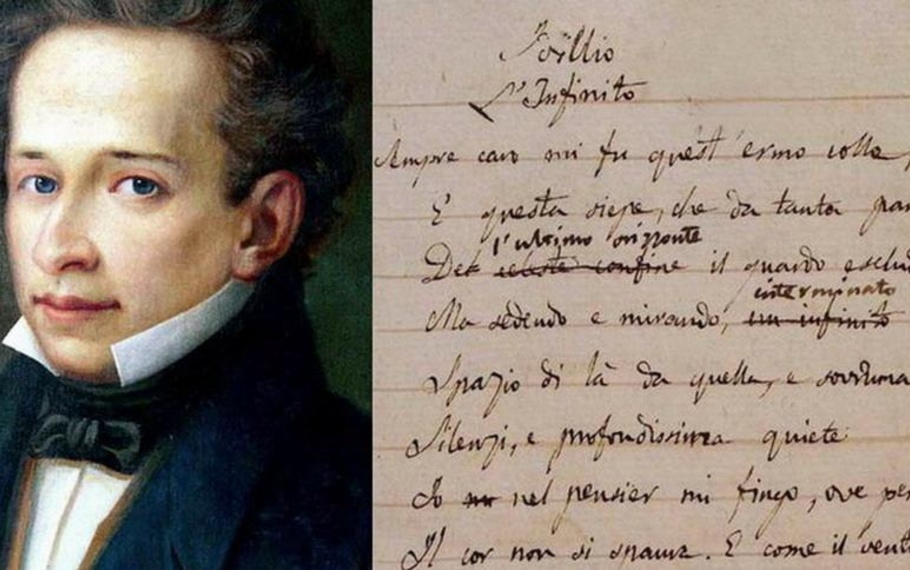 Idillio
L'Infinito
Sempre caro mi fu quest'ermo colle,
E questa siepe, che da tanta par
l'ultimo orizzonte
Del celeste confine il guardo esclud
interminato
Ma sedendo e mirando, un infinito
Spazio di là da quella, e sovruma
Silenzi, e profondissima quiete
Io nel pensier mi fingo, ove per
Il cor non si spaura. E come il vento